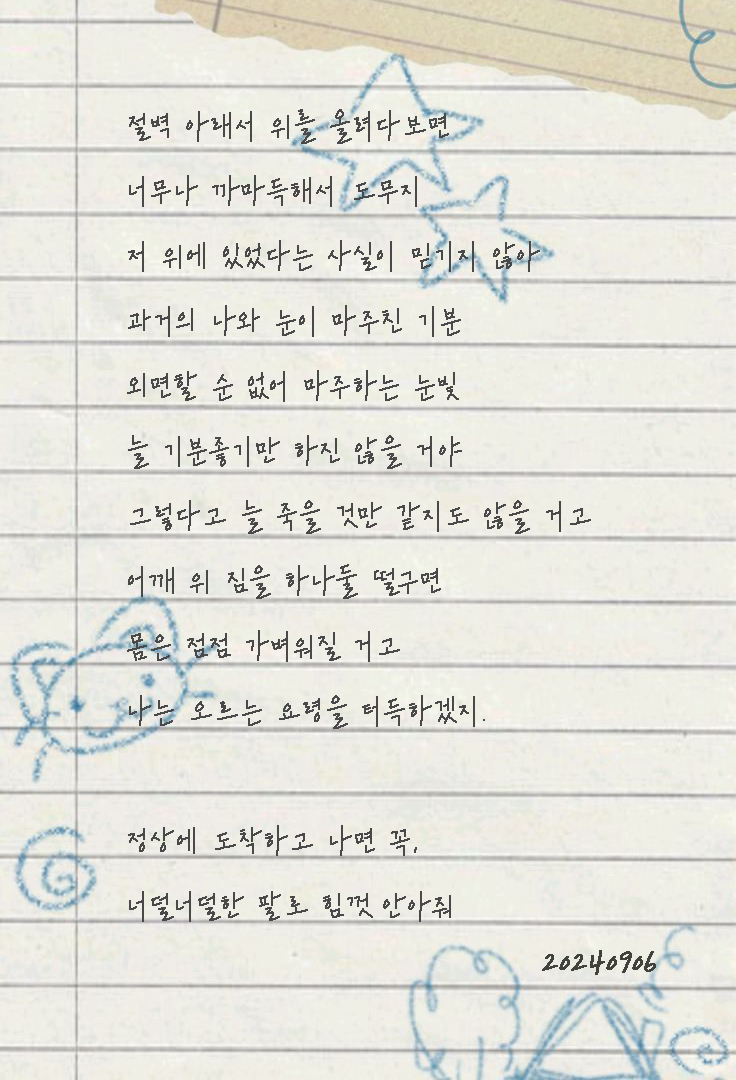 절벽 아래서 위를 올려다보면
너무나 까마득해서 도무지
저 위에 있었다는 사실이 믿기지 않아
과거의 나와 눈이 마주친 기분
외면할 순 없어 마주하는 눈빛
늘 기분좋기만 하진 않을 거야
그렇다고 늘 죽을 것만 같지도 않을 거고
어깨 위 짐을 하나둘 떨구면
몸은 점점 가벼워질 거고
나는 오르는 요령을 터득하겠지.
정상에 도착하고 나면 꼭,
너덜너덜한 팔로 힘껏 안아줘
20240906